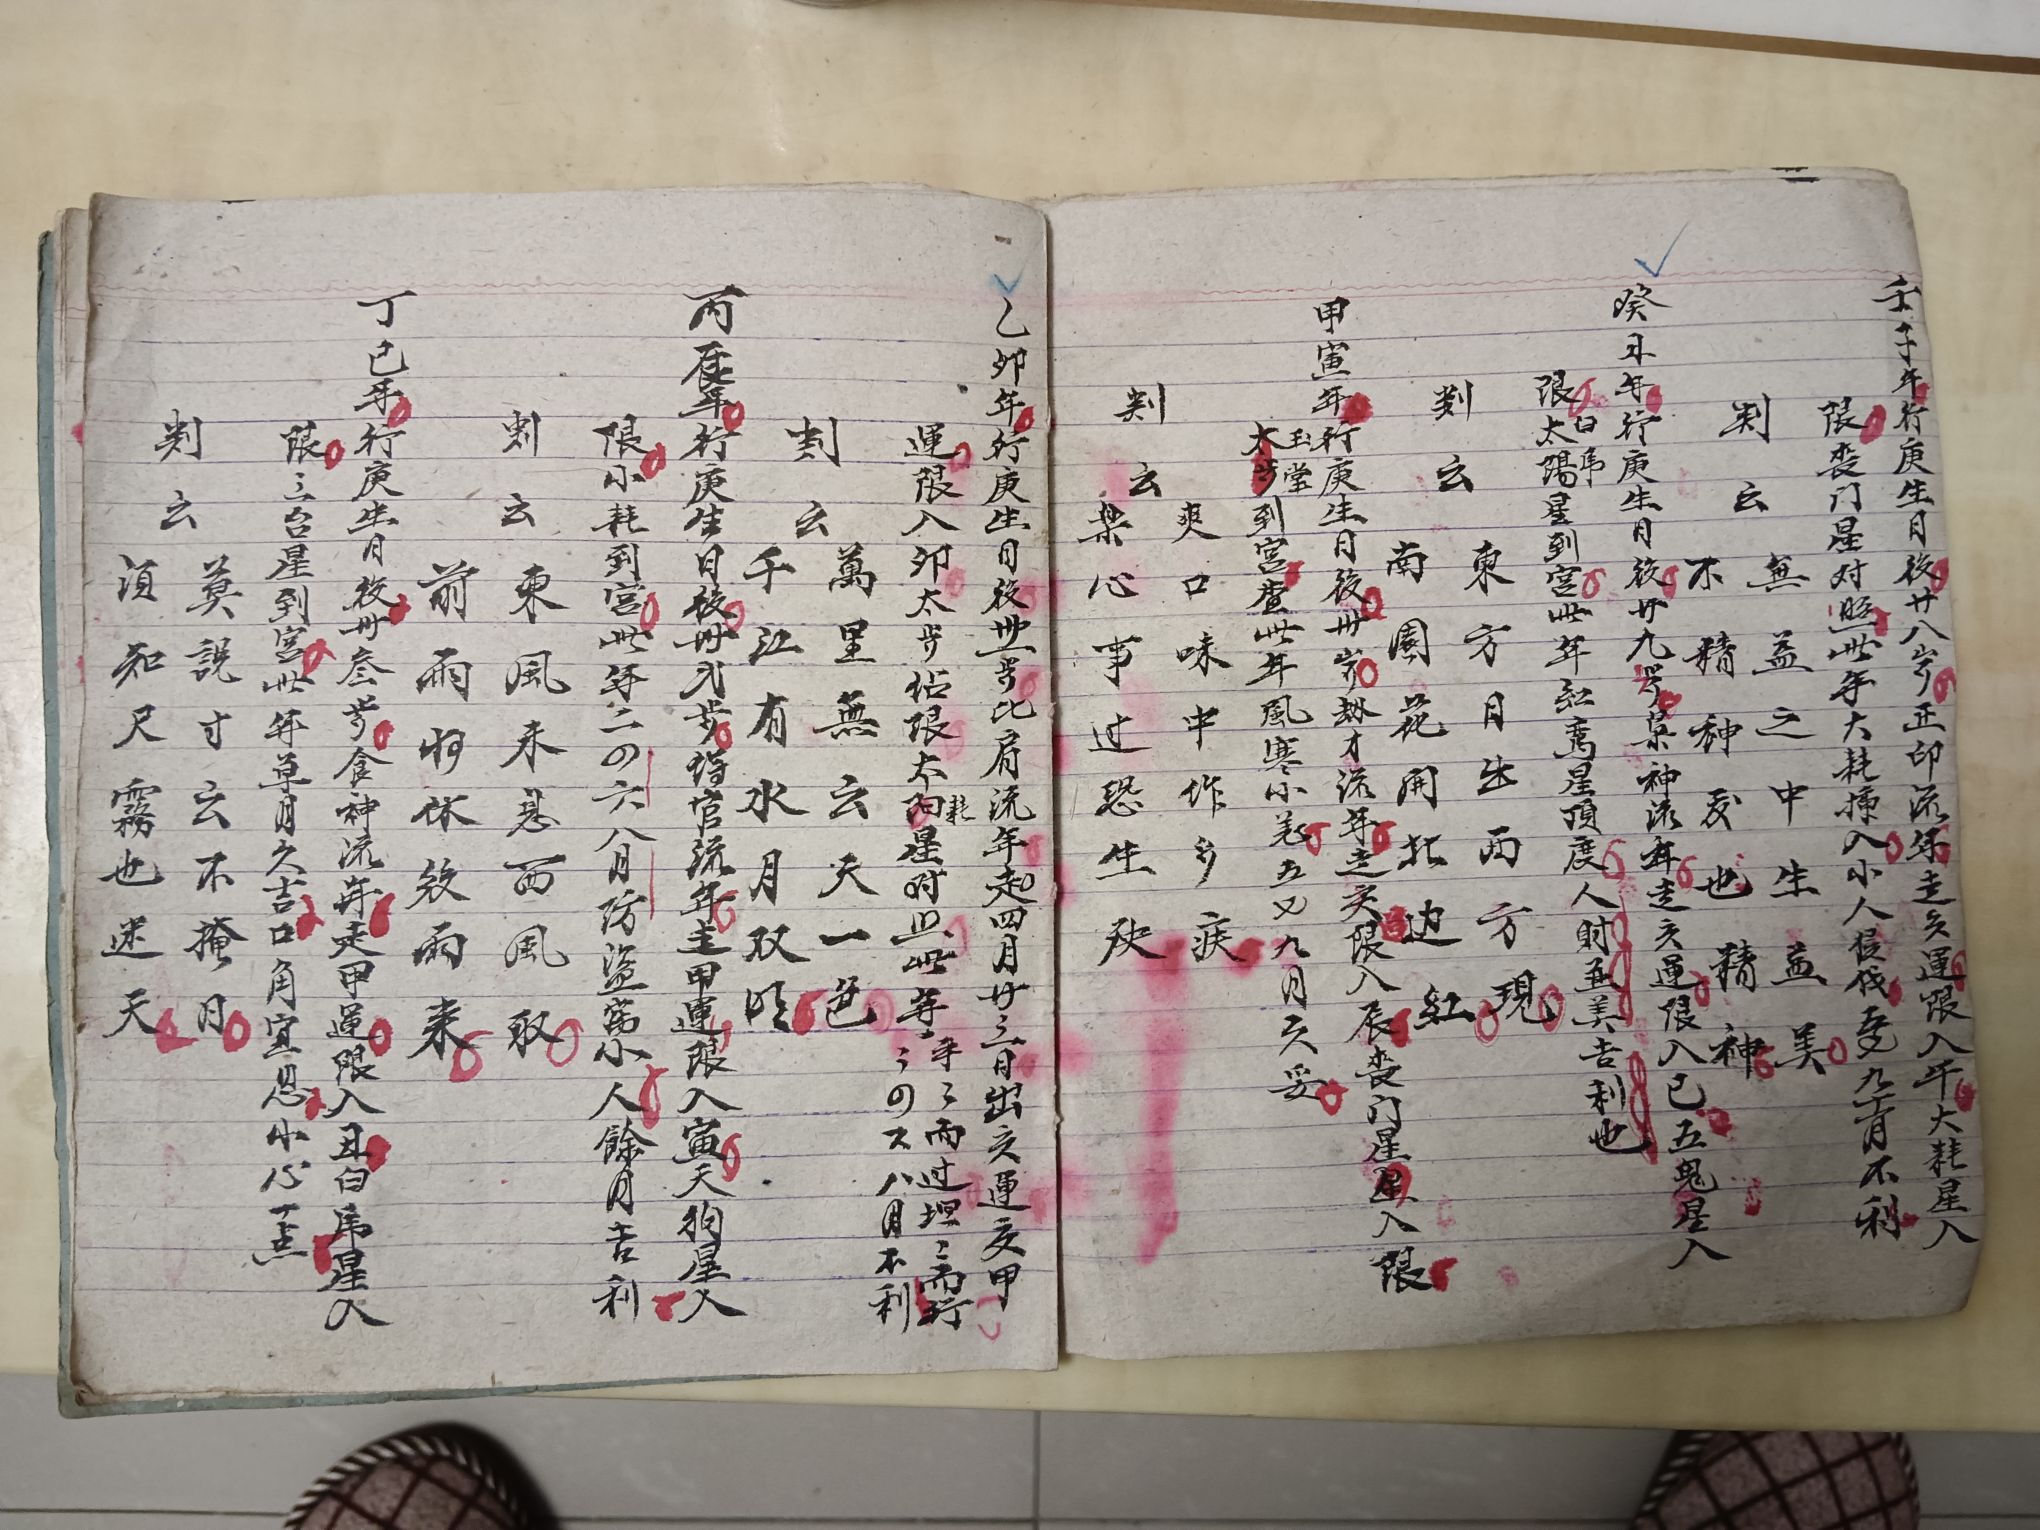 壬子年行庚生月後廿八岁正印流年走亥運限入午大耗星入
限喪门星对照此年大耗插入小人侵伐 九 月不利
判云
無益之中生益美
不精神处也精神
癸丑年行庚生月後廿九岁枭神流年走亥運限入已五鬼星入
限白虎太陽星到宫此年紅鸾星頂度人財並美吉利也
判云
東方月出西方現
南園花開北边紅
甲寅年行庚生日後卅岁劫才流年走亥限入辰喪门星入限
玉堂太岁到宫 此年風寒小恙五又九月欠妥
判云
爽口味中作多疾
樂心事过恐生殃
乙卯年行庚生日後卅一岁比肩流年起四月廿三日出亥運交甲
運限入卯太岁佔限太耗星对照此年年年而过坦坦而行
二の又八月不利
判云
萬里無云天一色
千江有水月双明
丙辰年行庚生日後卅弍岁傷官流年走甲運限入寅天狗星入
限小耗到宫此年二の六八月防盗窃小人餘月吉利
判云
東風未息西風取
前雨将休後雨来
丁已年行庚生月後卅叁岁食神流年走甲運限入丑白虎星入
限三台星到宫此年草月欠吉口角宜忍小心一点
判云
莫説寸云不掩月
須知尺霧也迷天